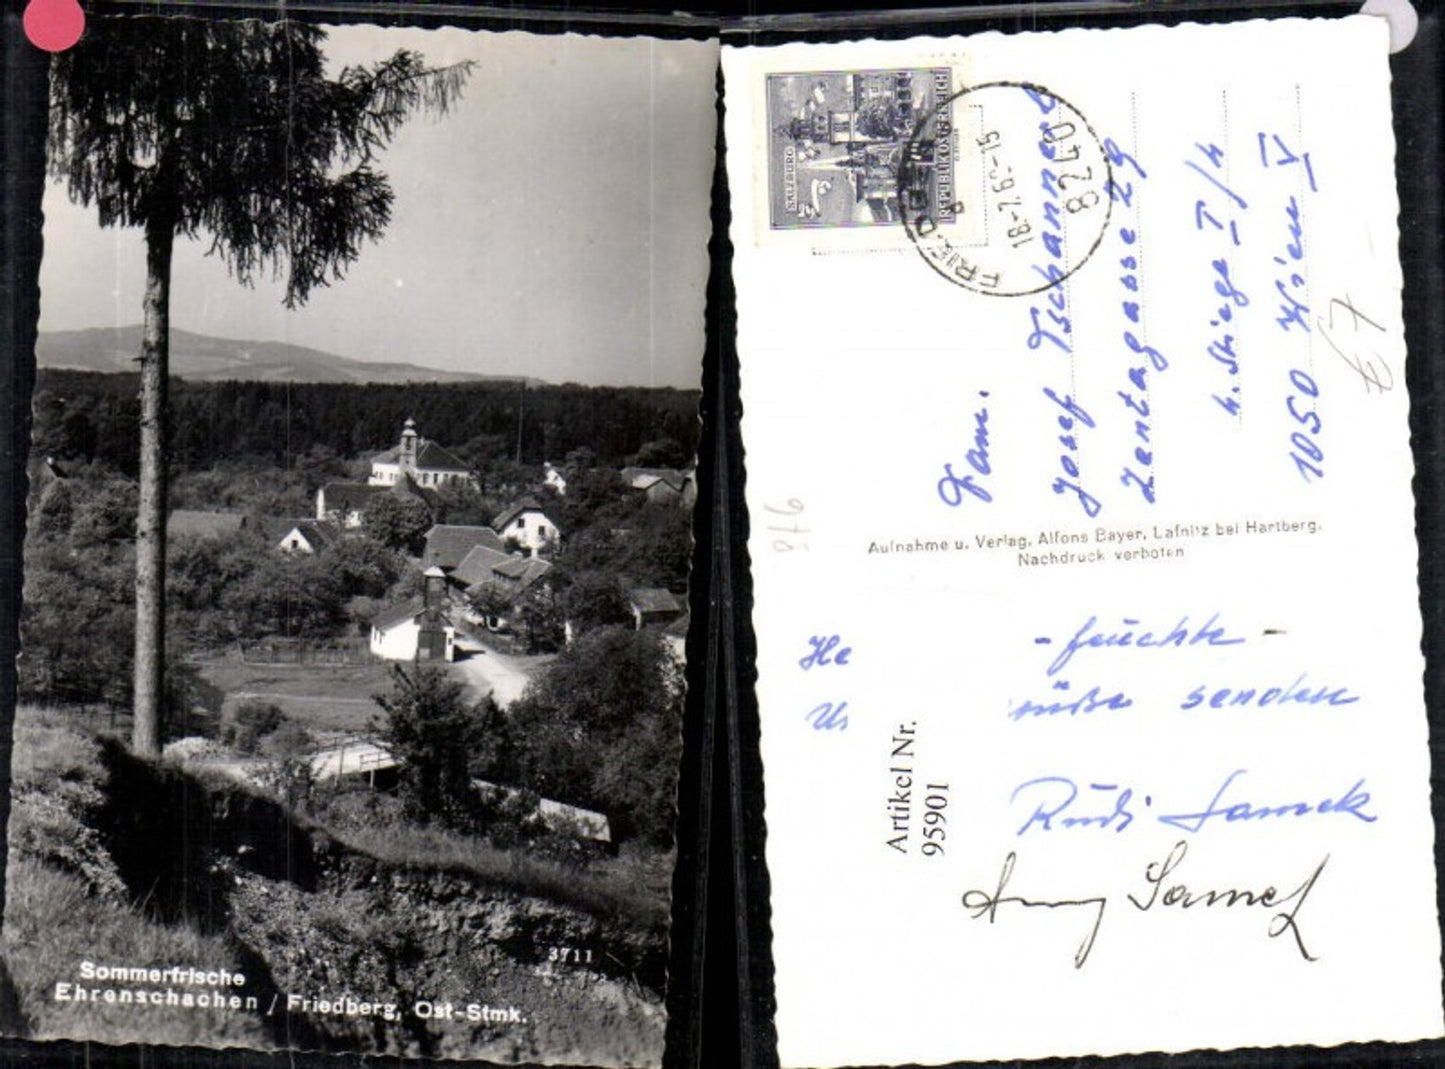 Sommerfrische
Ehrenschachen / Friedberg, Ost-Stmk.
3711
SALZBURG
REPUBLIK ÖSTERREICH
18.-7.6
8240
Fam.
Josef Tschannerl
Zentagasse 29
4. Stiege I/4
1050 Wien V
€ 7
976
Aufnahme u. Verlag, Alfons Bayer, Lafnitz bei Hartberg.
Nachdruck verboten
He - feuchte -
senden
Artikel Nr.
95901
Rudi Samek
Samek